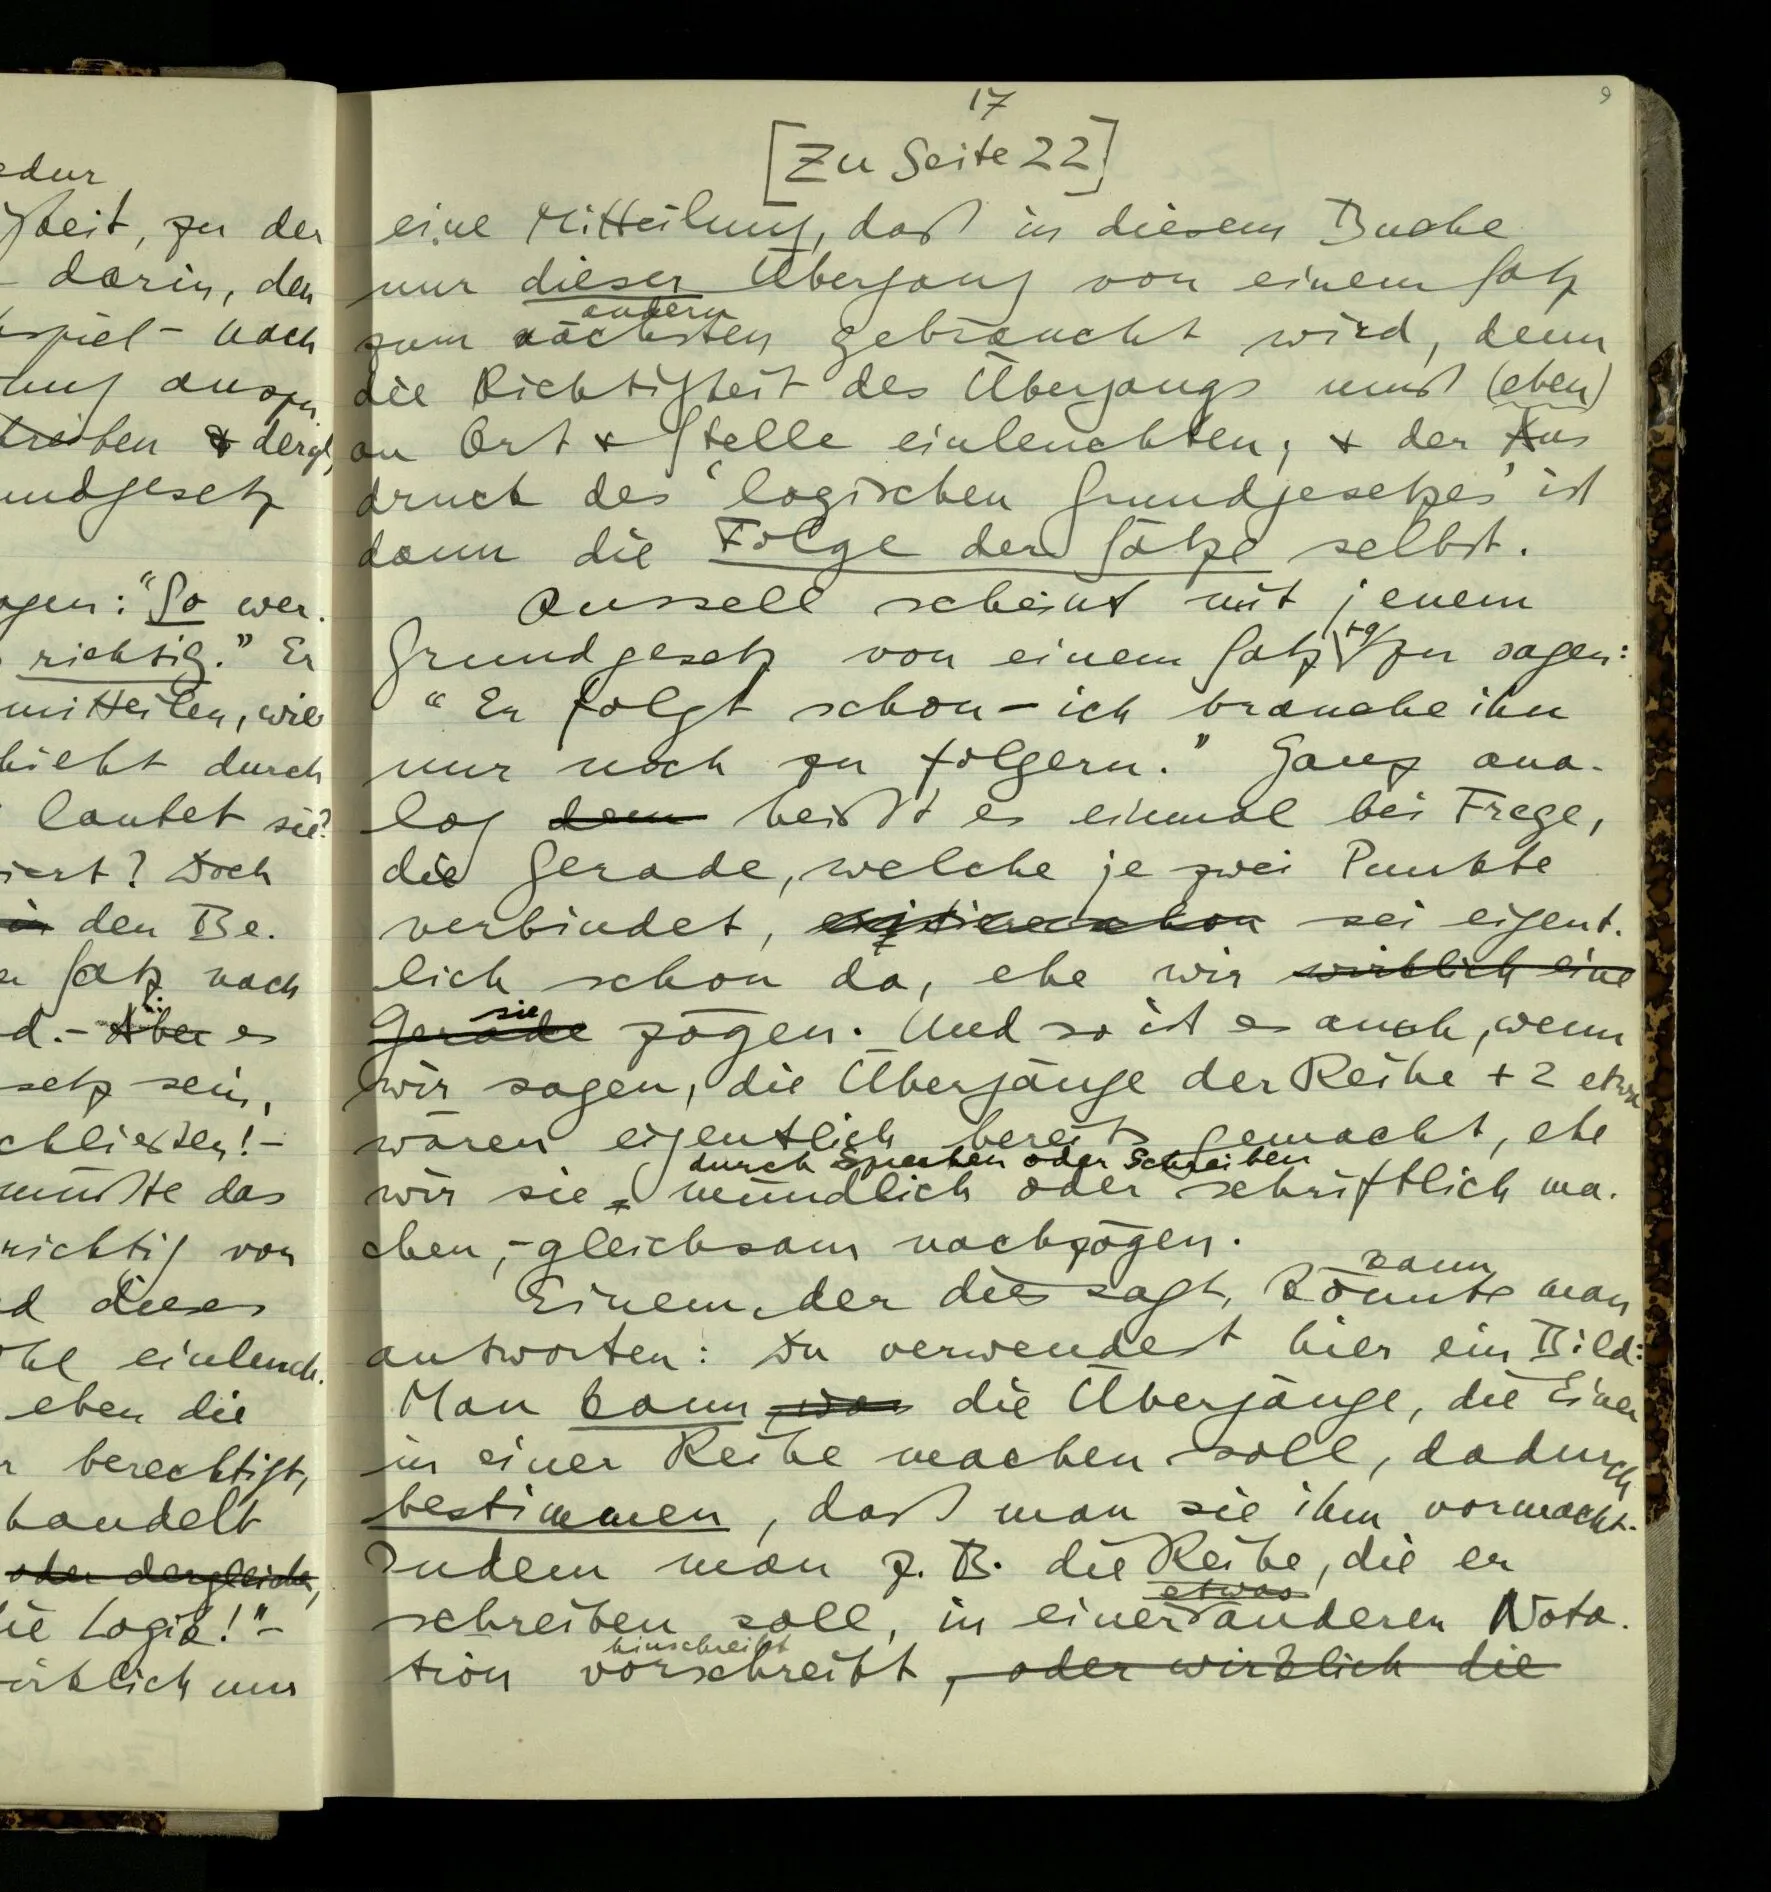 edur
zu der
darin, den
spiel – nach
treiben & dergl,
undgesetz
ogen: "So wer.
richtig." Er
mitteilen, wie
hieht durch
lautet sie?
iert? Doch
in den Be.
Satz nach
d. – Aber es
setz sein,
chließen! –
müßte das
richtig von
d dieses
ohl einleuch.
eben die
r berechtigt,
handelt
oder dergleichen,
ie Logik!" –
irklich nur
17
9
[Zu Seite 22]
eine Mitteilung, daß in diesem Buche
nur dieser Übergang von einem Satz
andern
zum nächsten gebraucht wird, denn
die Richtigkeit des Übergangs muß (eben)
an Ort & Stelle einleuchten; & der Aus
druck des 'logischen Grundgesetzes' ist
dann die Folge der Sätze selbst.
Russell scheint mit jenem
Grundgesetz von einem Satz zu sagen:
"Er folgt schon – ich brauche ihn
nur noch zu folgern." Ganz ana-
log dem heißt es einmal bei Frege,
die Gerade, welche je zwei Punkte
verbindet, existiere schon sei eigent.
lich schon da, ehe wir wirklich eine
sie
Gerade zögen. Und so ist es auch, wenn
wir sagen, die Übergänge der Reihe + 2 etwa
wären eigentlich bereits gemacht, ehe
durch Sprechen oder Schreiben
wir sie mündlich oder schriftlich ma.
chen, – gleichsam nachzögen.
kann
Einem, der dies sagt, könnte man
antworten: Du verwendest hier ein Bild:
Man kann, was die Übergänge, die Einer
in einer Reihe machen soll, dadurch
bestimmen, daß man sie ihm vormacht.
Indem man z. B. die Reihe, die er
etwas
schreiben soll, in einer anderen Nota.
hinschreibt
tion vorschreibt, oder wirklich die